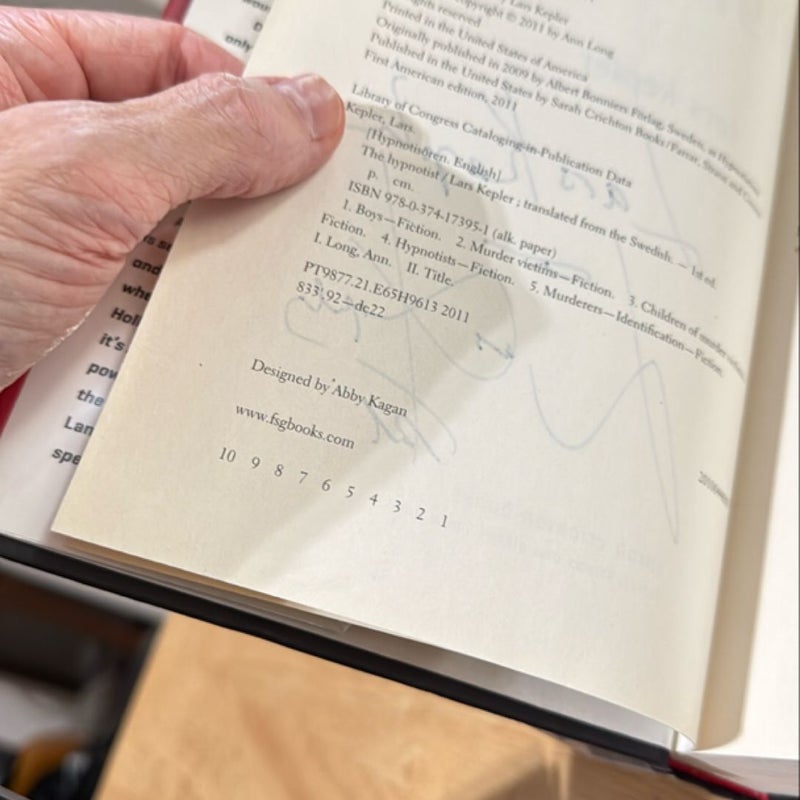 Lars Kepler
copyright © 2011 by Ann Long
rights reserved
Printed in the United States of America
Originally published in 2009 by Albert Bonniers Förlag, Sweden, as
Published in the United States by Sarah Crichton Books / Farrar, Straus and
First American edition, 2011
Library of Congress Cataloging-in-Publication Data
Kepler, Lars.
[Hypnotisören. English]
The hypnotist / Lars Kepler ; translated from the Swedish. — 1st ed.
p. cm.
ISBN 978-0-374-17395-1 (alk. paper)
1. Boys—Fiction. 2. Murder victims—Fiction. 3. Children of murder
Fiction. 4. Hypnotists—Fiction. 5. Murderers—Identification—Fiction.
I. Long, Ann. II. Title.
PT9877.21.E65H9613 2011
833'.92—dc22
Designed by Abby Kagan
www.fsgbooks.com
10 9 8 7 6 5 4 3 2 1
only
is
and
Holl
it's
pow
the
Lan
spe